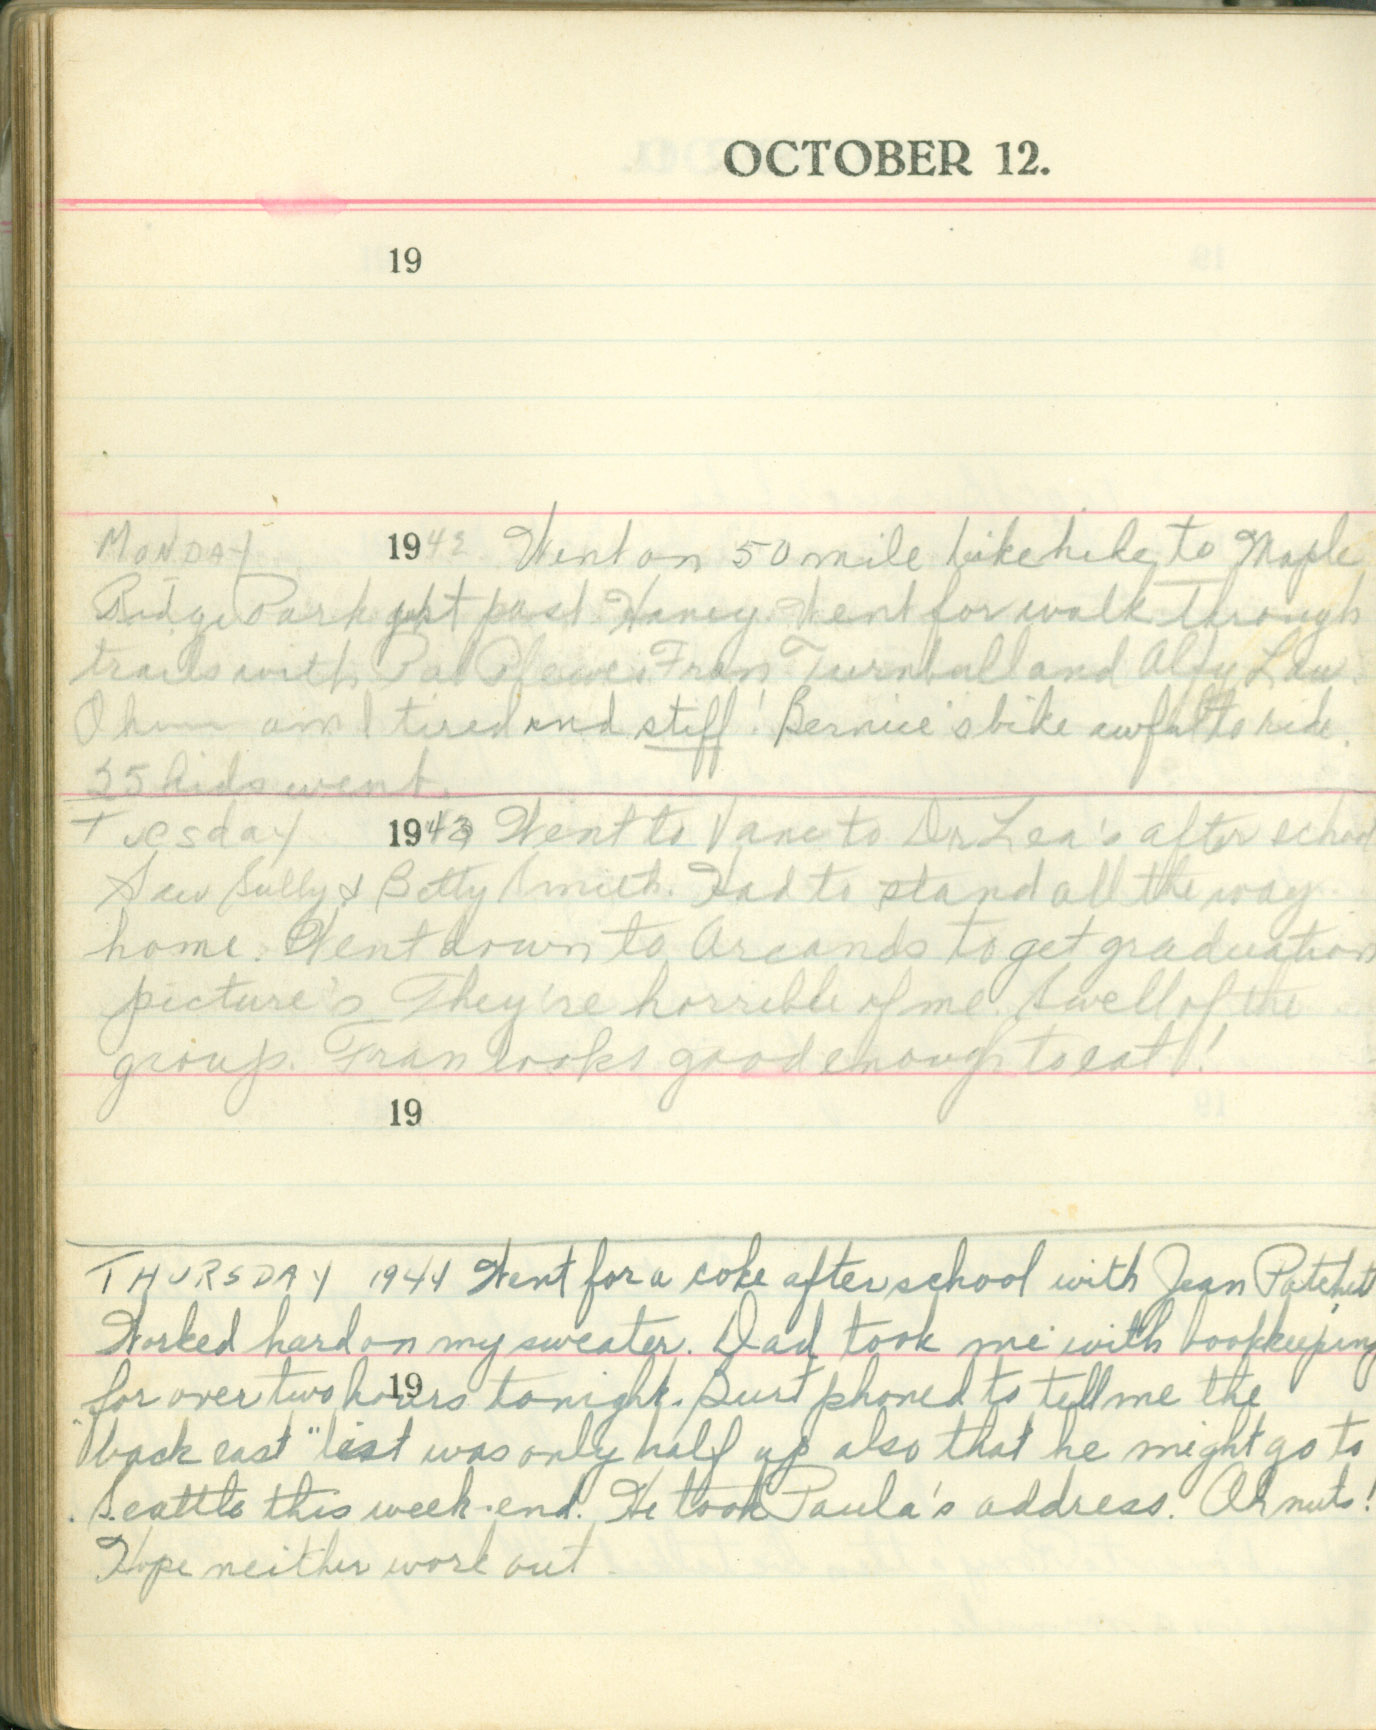 OCTOBER 12.
19
MONDAY 1942 Went on 50 mile bike hike to Maple
Ridge Park just past Haney. Went for walk through
trails with Pat Fran Turnbull and Alfy Law.
Oh am I tired and stiff! Bernice's bike awful to ride.
25 kids went.
Tuesday 1943 Went to Vanc to Dr Lea's after school
Saw Sully & Betty Smith. Had to stand all the way
home. Went down to Arcands to get graduation
picture's They're horrible of me. Swell of the
group. Fran looks good enough to eat!
19
THURSDAY 1944 Went for a coke after school with Jean Patchett
Worked hard on my sweater. Dad took me with bookkeeping
for over two hours tonight. Burt phoned to tell me the
19
"back east" list was only half up also that he might go to
Seattle this week-end. He took Paula's address. Ah nuts!
Hope neither work out.